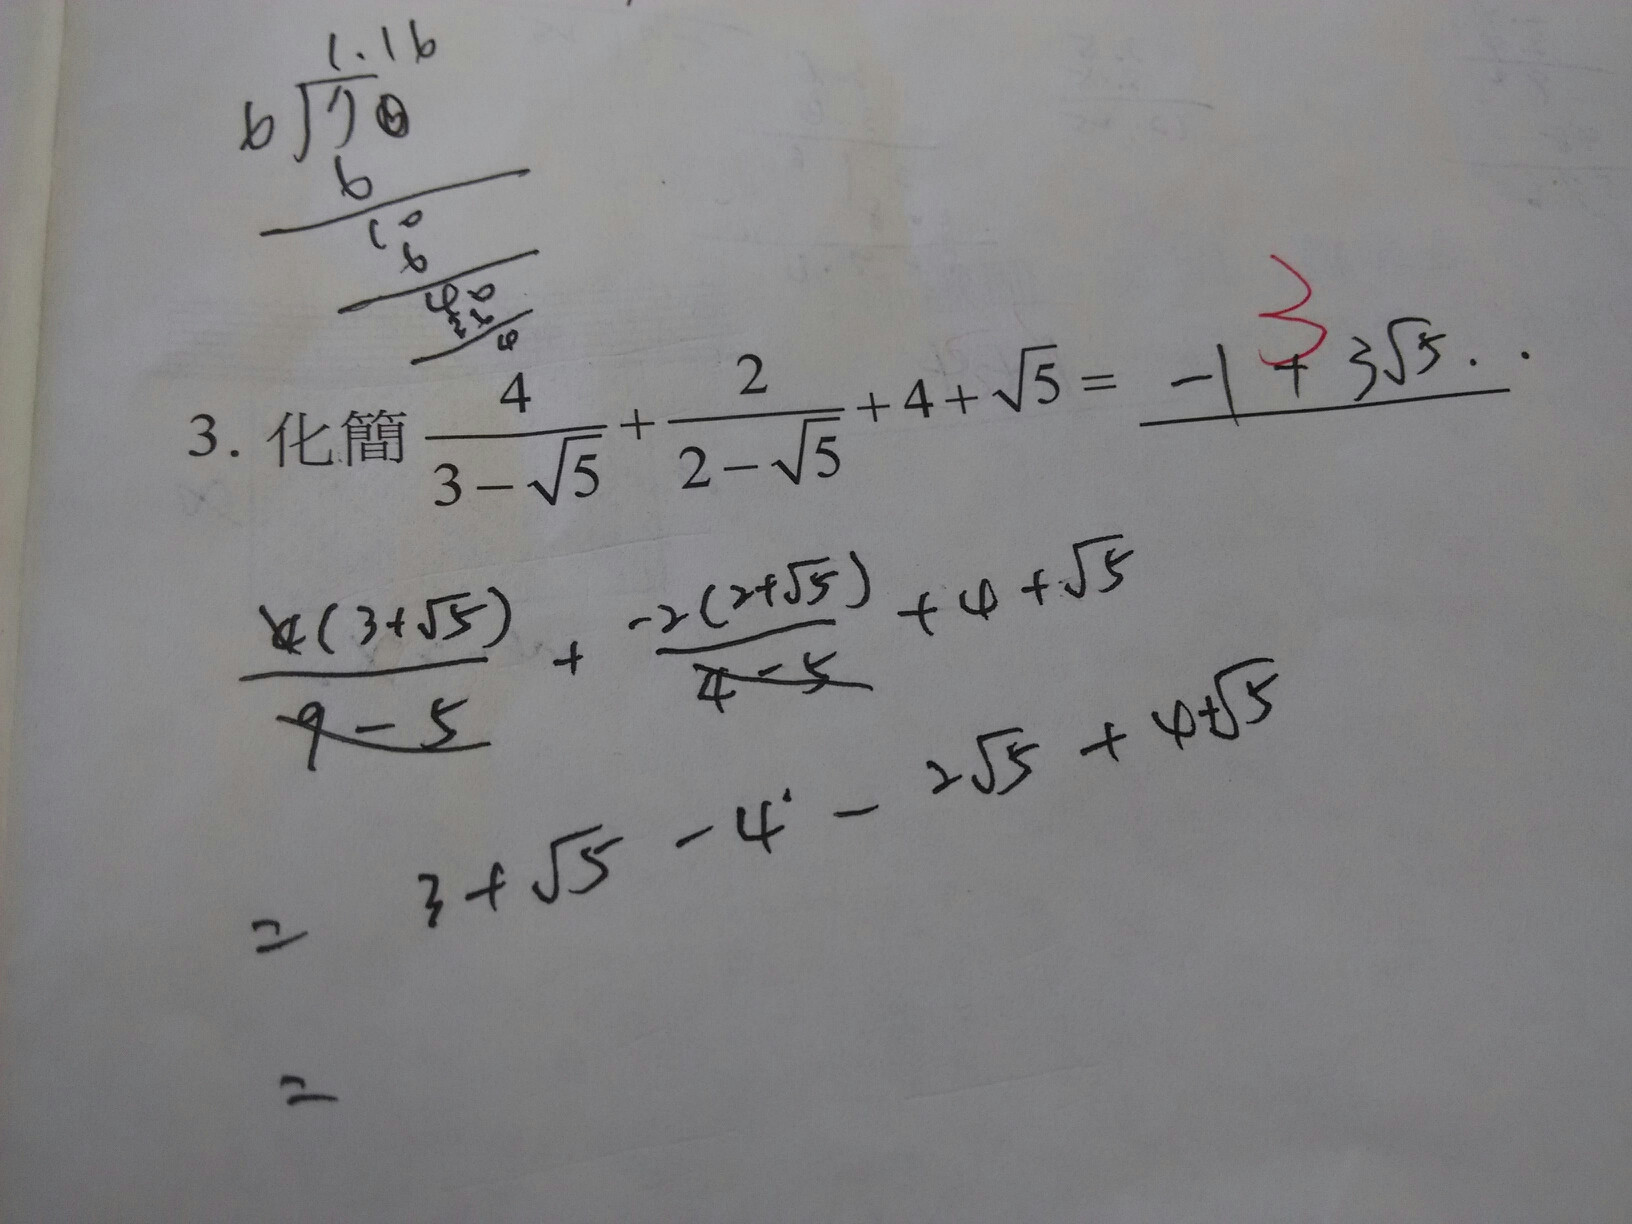 1.16
6 70
6
10
6
40
36
4
3
3. 化簡 4/(3-√5) + 2/(2-√5) + 4 + √5 = -1 + 3√5 . .
4(3+√5)/(9-5) + -2(2+√5)/(4-5) + 4 + √5
= 3 + √5 - 4 - 2√5 + 4 + √5
=